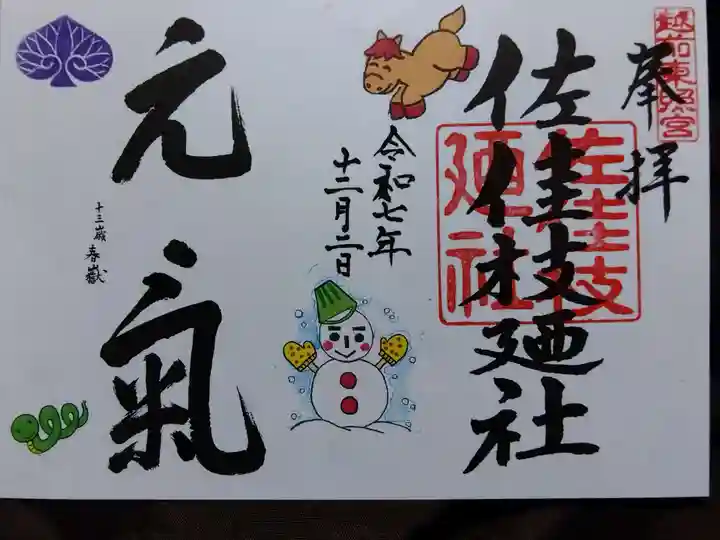 越前東照宮
奉拝
佐佳枝廼社
佐佳枝
廼社
令和七年
十二月二日
元氣
十三歳 春嶽